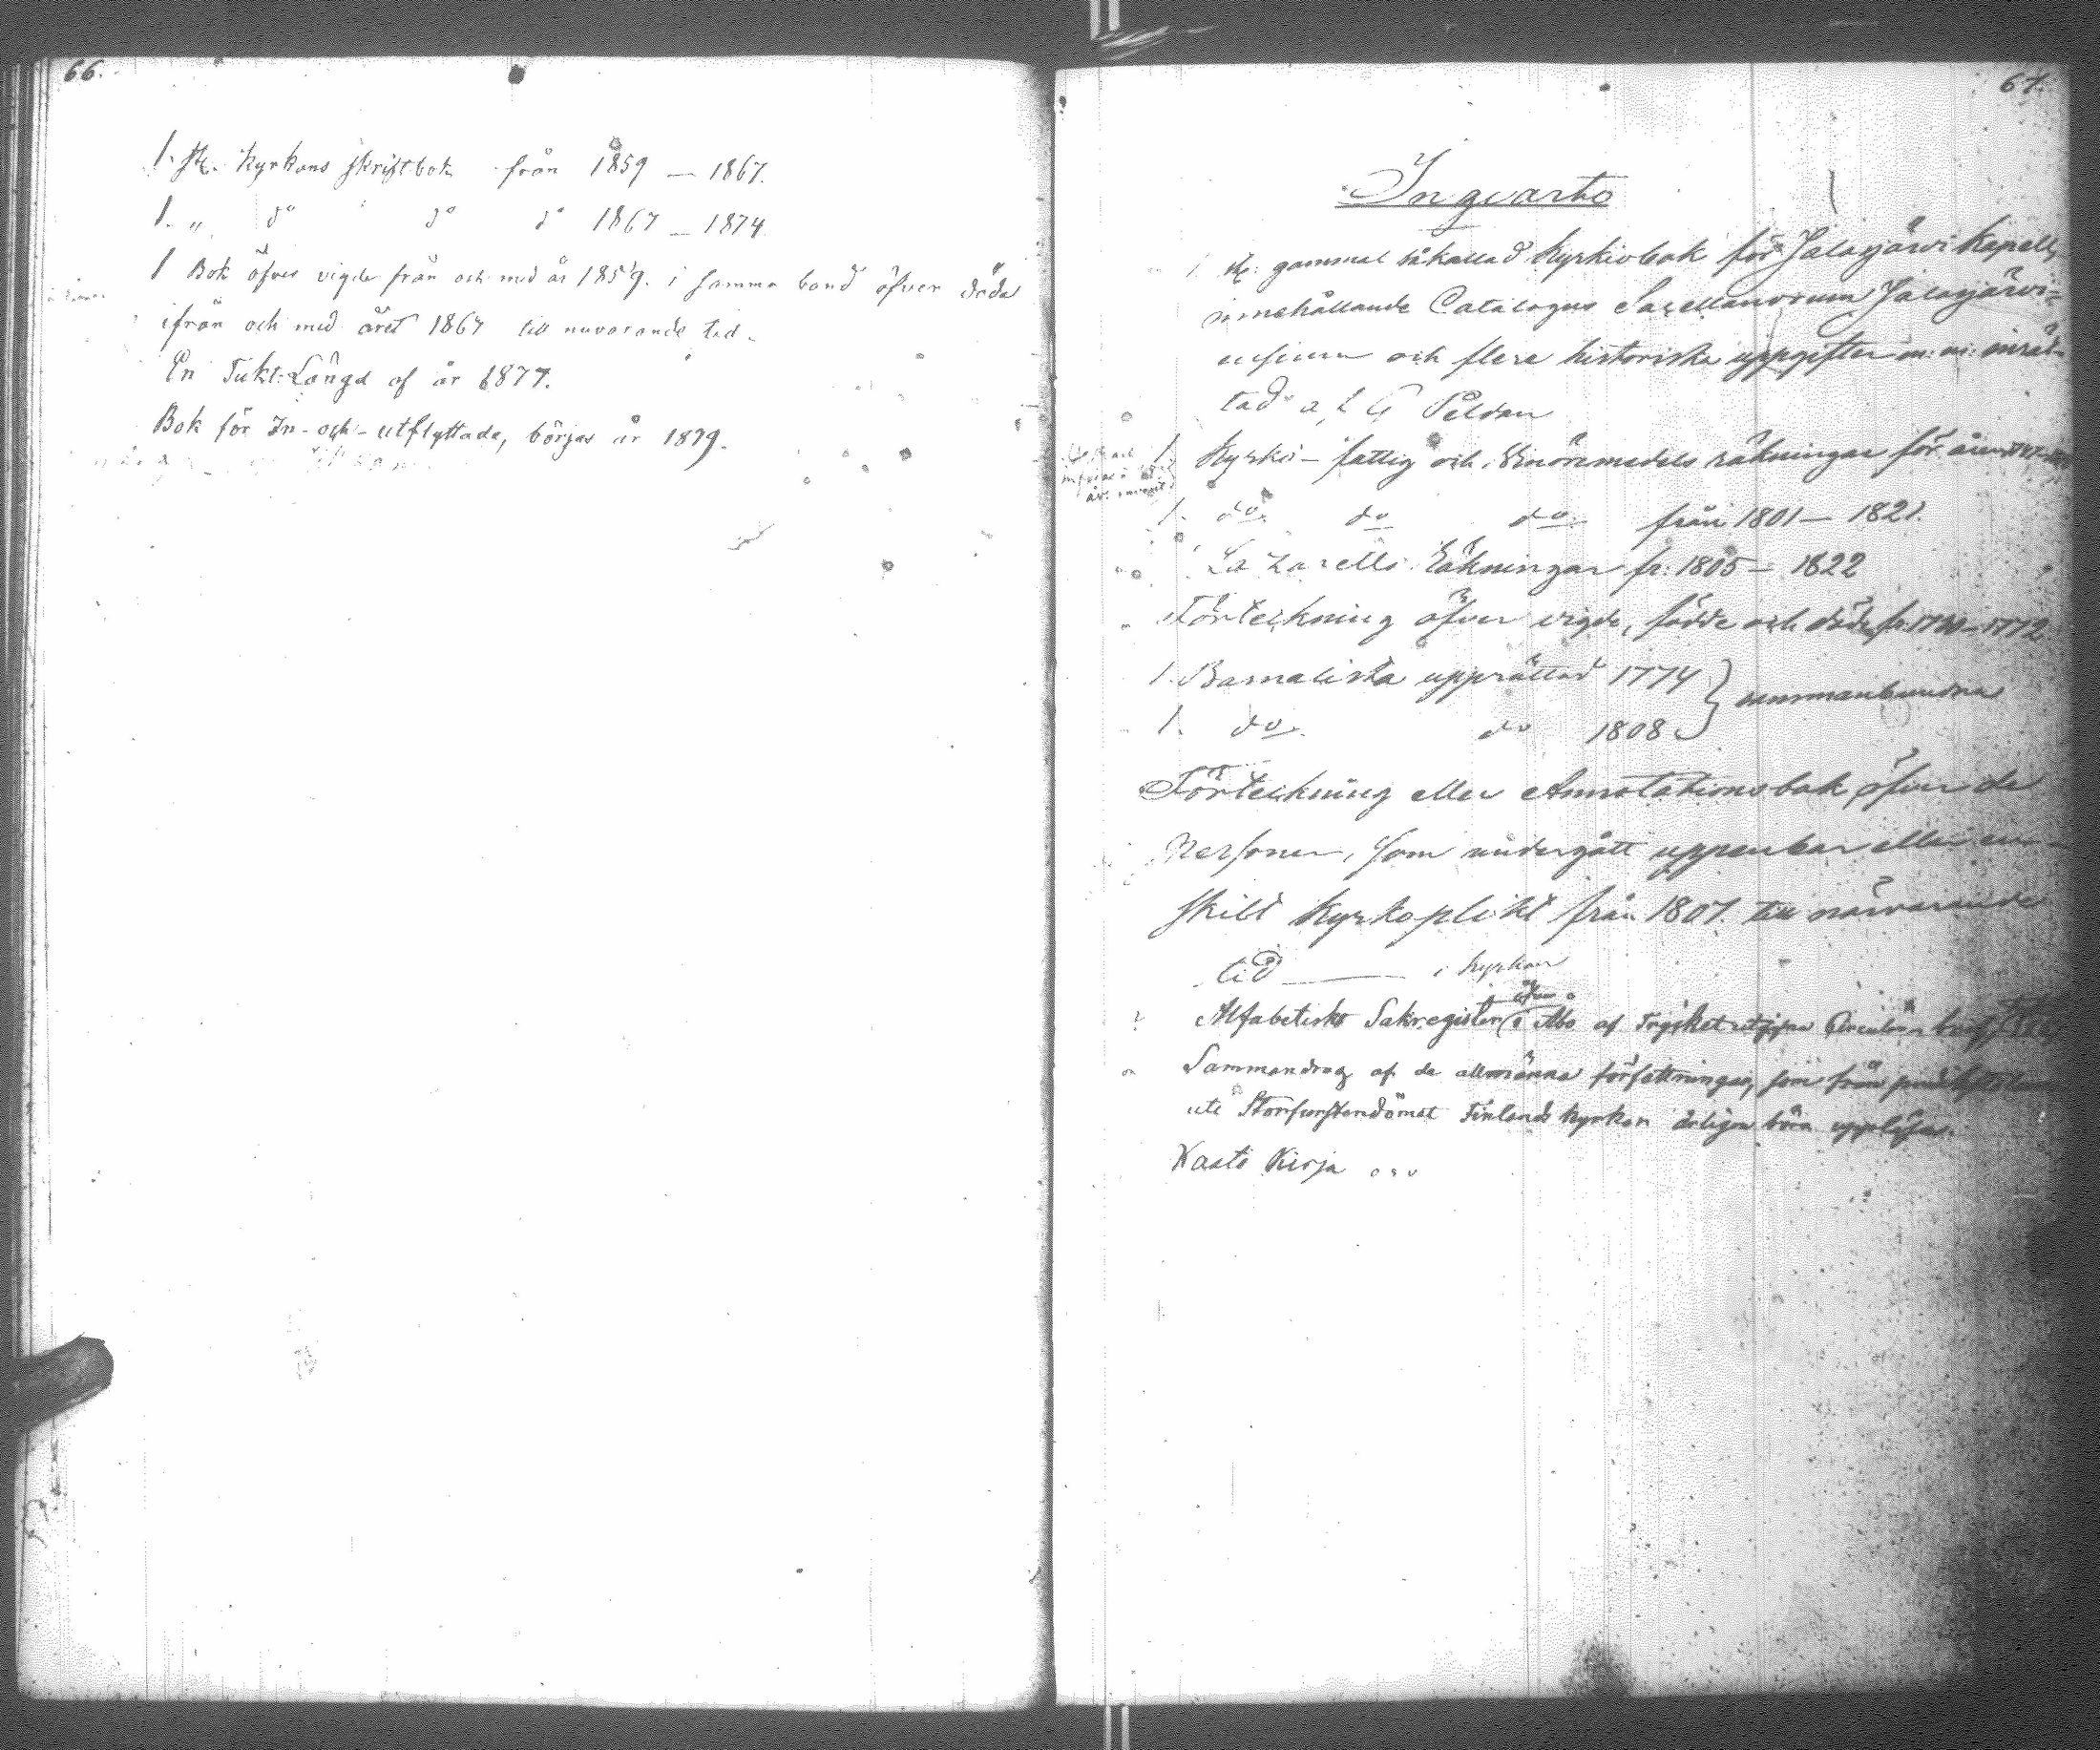 66.
1. St. Kyrkans skriftbok från 1859 — 1867.
1. „ do do do 1867 — 1874
1 Bok öfver vigde från och med år 1859. i samma band öfver döda
ifrån och med året 1867 till nuvarande tid.
En Tukt: Längd af år 1877.
Bok för In- och utflyttade, börjas år 1879.
67.
In qvarto
1. St: gammal såkallad Kyrkiobok för Jalasjärvi Kapell,
innehållande Catalogus Sacellanorum Jalasjärvi=
ensium och flere historiska uppgifter m: m: inrät-
tad af G Peldan
1. Kyrko- fattig och räkningar för åren
1. do do do från 1801 — 1821.
Lazaretts Räkningar fr: 1805 — 1822
Förteckning öfver vigde, födde och döde fr. 1772.
1. Barnalista upprättad 1774 } sammanbundna
1. do do 1808
Förteckning eller Annotationsbok öfver de
Personer, som undergått uppenbar eller en-
skild Kyrkoplikt från 1807. till närvarande
tid — i kyrkan
Alfabetiskt Sakregister öfver i Åbo af Trycket utgifna
Sammandrag af de allmänna författningar, som från
uti Storfurstendömet Finlands kyrkor årligen böra uppläsas.
Kaste Kirja